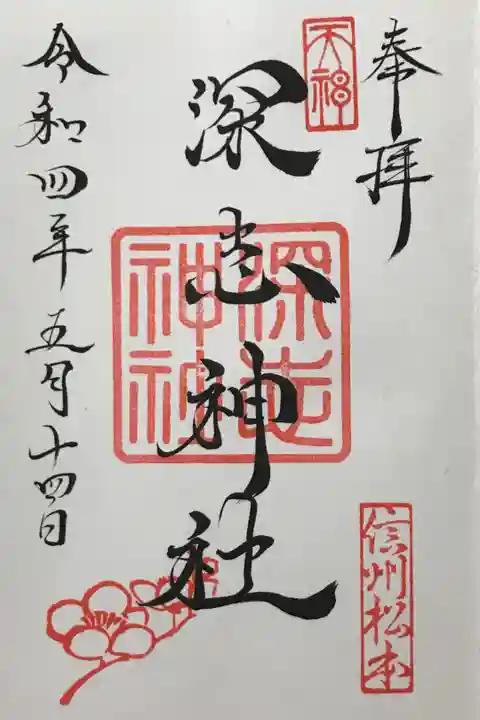 奉拝
天神
信州松本
深志神社
深志神社
令和四年五月十四日